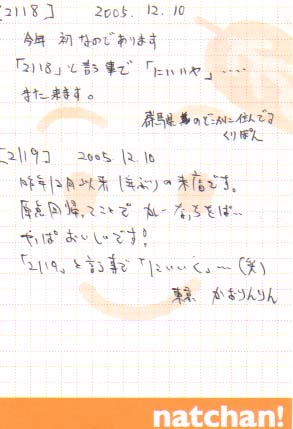 [2118] 2005.12.10
今年初なのであります
「2118」と言う事で「にいいや」‥‥
また来ます。
群馬県のどこかに住んでる
くりぽん
[2119] 2005.12.10
昨年12月以来1年ぶりの来店です。
原点回帰ってことでカレーなっちそば…
やっぱおいしいです!
「2119」と言う事で「にいいく」…(笑)
東京 かおりんりん
natchan!